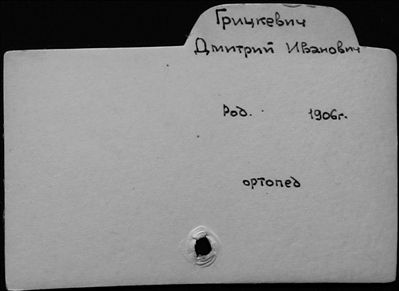 Грицкевич
Дмитрий Иванович
Род. 1906г.
ортопед